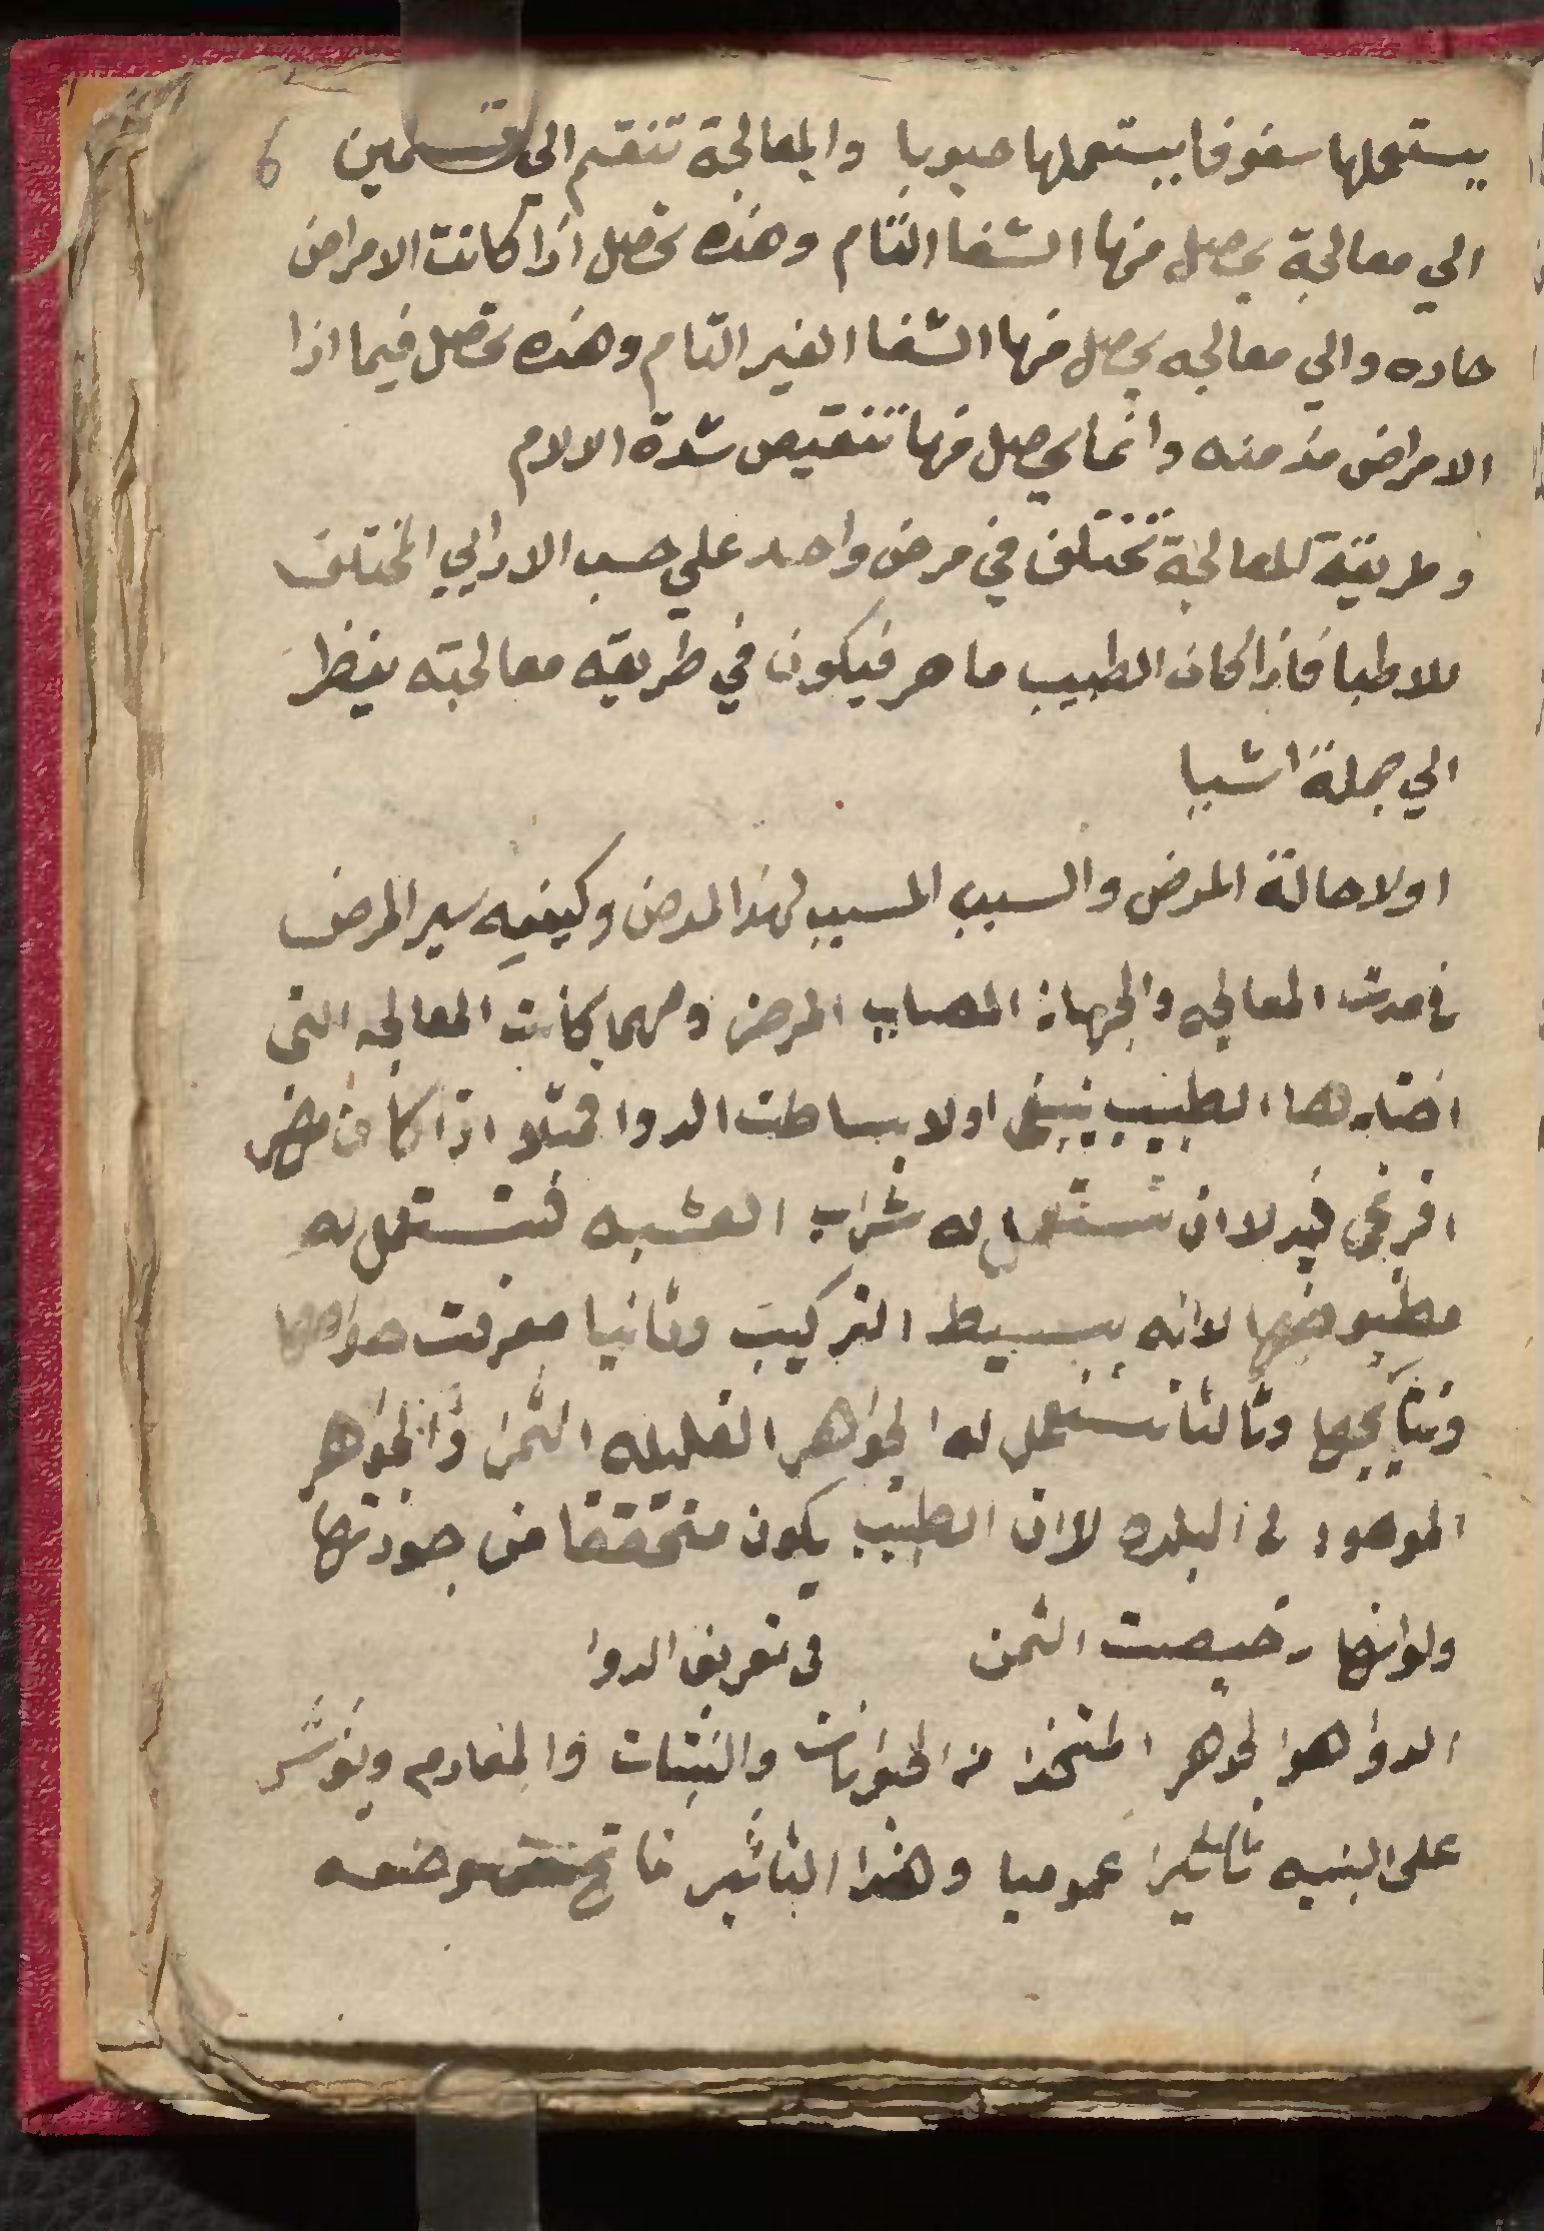 يستعملها سفوفا يستعملها حبوبا والمعالجة تنقسم الي قسمين 6
الي معالجة يحصل منها الشفا التام وهذه تحصل اذا كانت الامراض
حاده والي معالجه يحصل منها الشفا الغير التام وهذه تحصل فيما اذا
الامراض مزمنه وانما يحصل منها تنقيص شدة الالام
وطريقة للمعالجة تختلف في مرض واحد علي حسب الاراىي المختلف
للاطبا فاذا كان الطبيب ماهر فيكون في طريقه معالجته ينظر
الي جملة اشيا
اولا حالة المرض والسبب المسبب لهذا المرض وكيفيه سير المرض
في مدت المعالجه والجهاة المصاب المرض ومهما كانت المعالجه التى
اختارها الطبيب ينبغى اولا بساطت الدوا فمثلا اذا كان مرض
افرنجى فبدلا ان تستعمل له شراب العشبه فتستعمل له
مطبوخها لانه بسيط التركيب وثانيا معرفت خواصها
ونتايجها وثالثا تستعمل له الجواهر القليله الثمن والجواهر
الموجود فى البلده لان الطبيب يكون متحققا من جودتها
ولو انها رخيصت الثمن فى تعريف الدوا
الدوا هو الجوهر المتخذ من الحيوانات والنبتات والمعادم ويؤثر
على البنيه تاثيرا عموميا وهذا التاثير وضعه